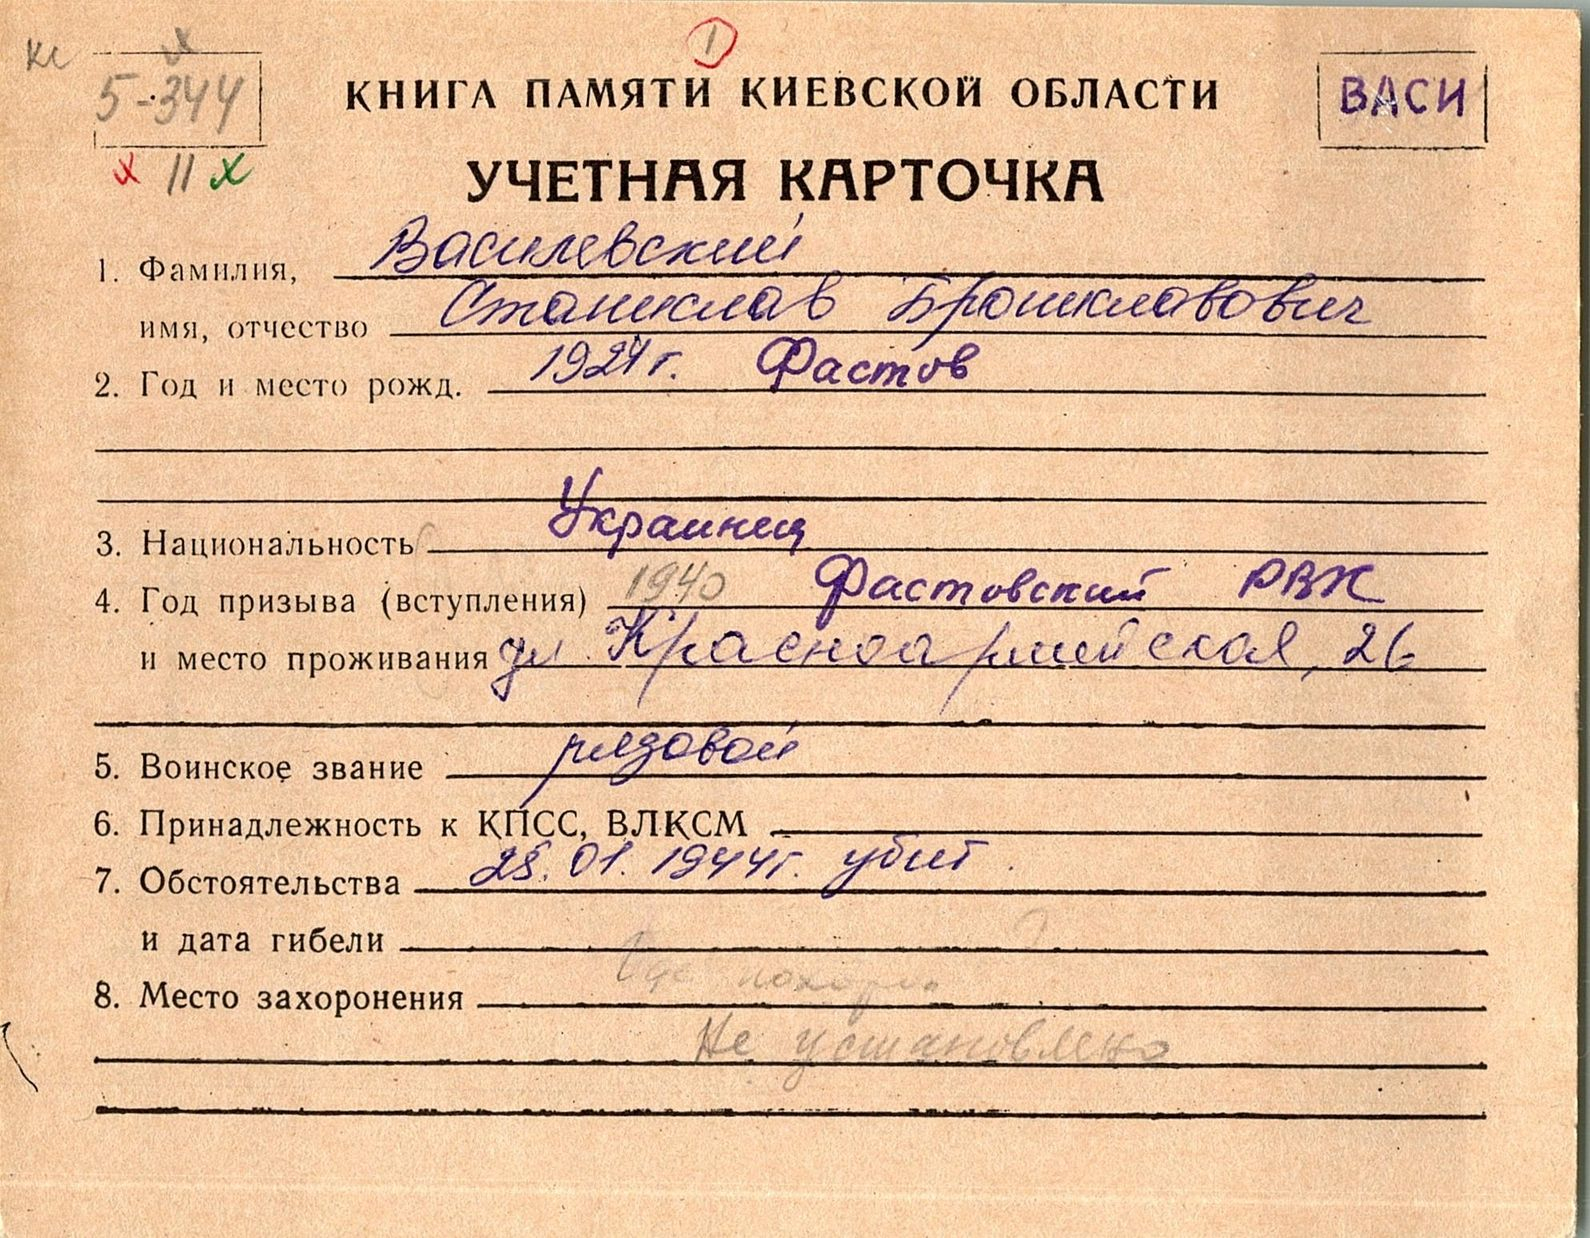 кс х 1
5-344 КНИГА ПАМЯТИ КИЕВСКОЙ ОБЛАСТИ ВАСИ
х II х УЧЕТНАЯ КАРТОЧКА
1. Фамилия, Василевский
имя, отчество Станислав Брониславович
2. Год и место рожд. 1924г. Фастов
3. Национальность Украинец
4. Год призыва (вступления) 1940 Фастовский РВК
и место проживания ул. Красноармейская, 26
5. Воинское звание рядовой
6. Принадлежность к КПСС, ВЛКСМ
7. Обстоятельства 28.01.1944г. убит.
и дата гибели
8. Место захоронения Где похор.
Не установлено